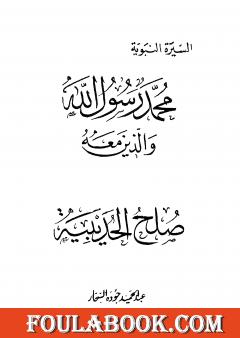 السيرة النبوية
محمد رسول الله
والذين معه
صلح الحديبية
عبد الحميد جوده السحار
FOULABOOK.COM